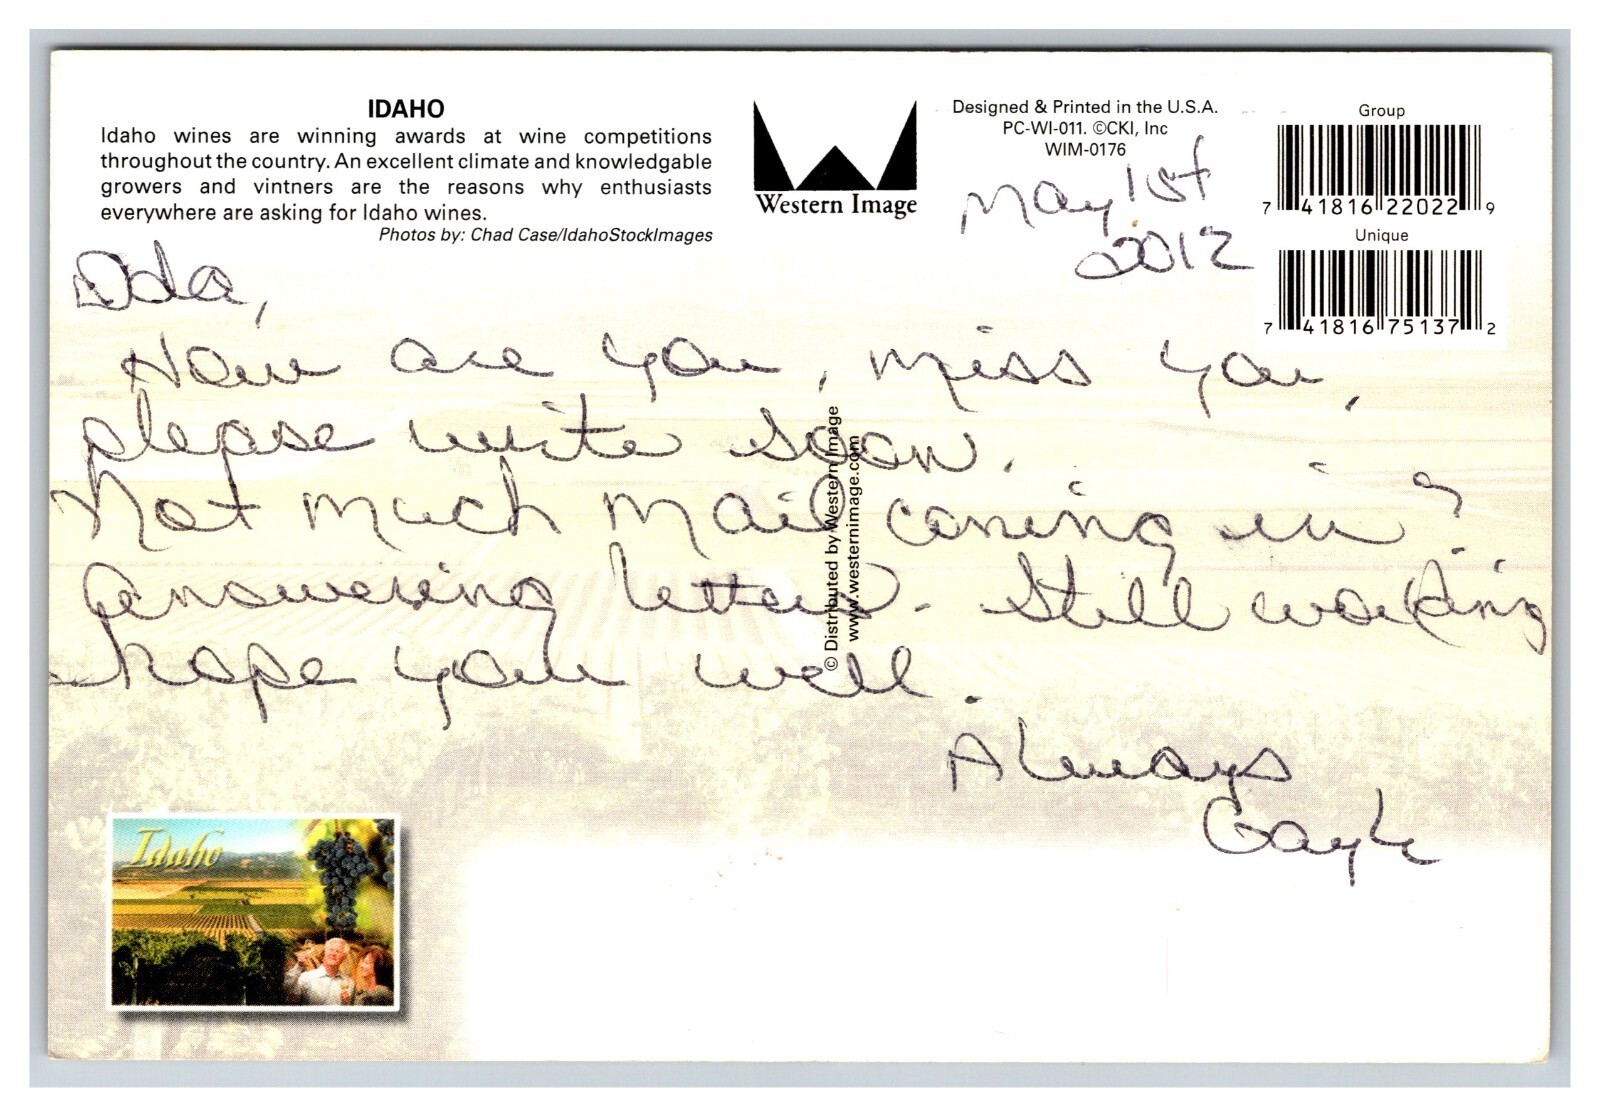 IDAHO
Idaho wines are winning awards at wine competitions
throughout the country. An excellent climate and knowledgable
growers and vintners are the reasons why enthusiasts
everywhere are asking for Idaho wines.
Photos by: Chad Case/IdahoStockImages
Western Image
Designed & Printed in the U.S.A.
PC-WI-011. ©CKI, Inc
WIM-0176
Group
7 41816 22022 9
Unique
7 41816 75137 2
May 1st
2012
Oda,
How are you, miss you,
please write soon.
Not much mail coming in,
answering letters. Still working
hope your well.
Always
Gayle
© Distributed by Western Image
www.westernimage.com
Idaho